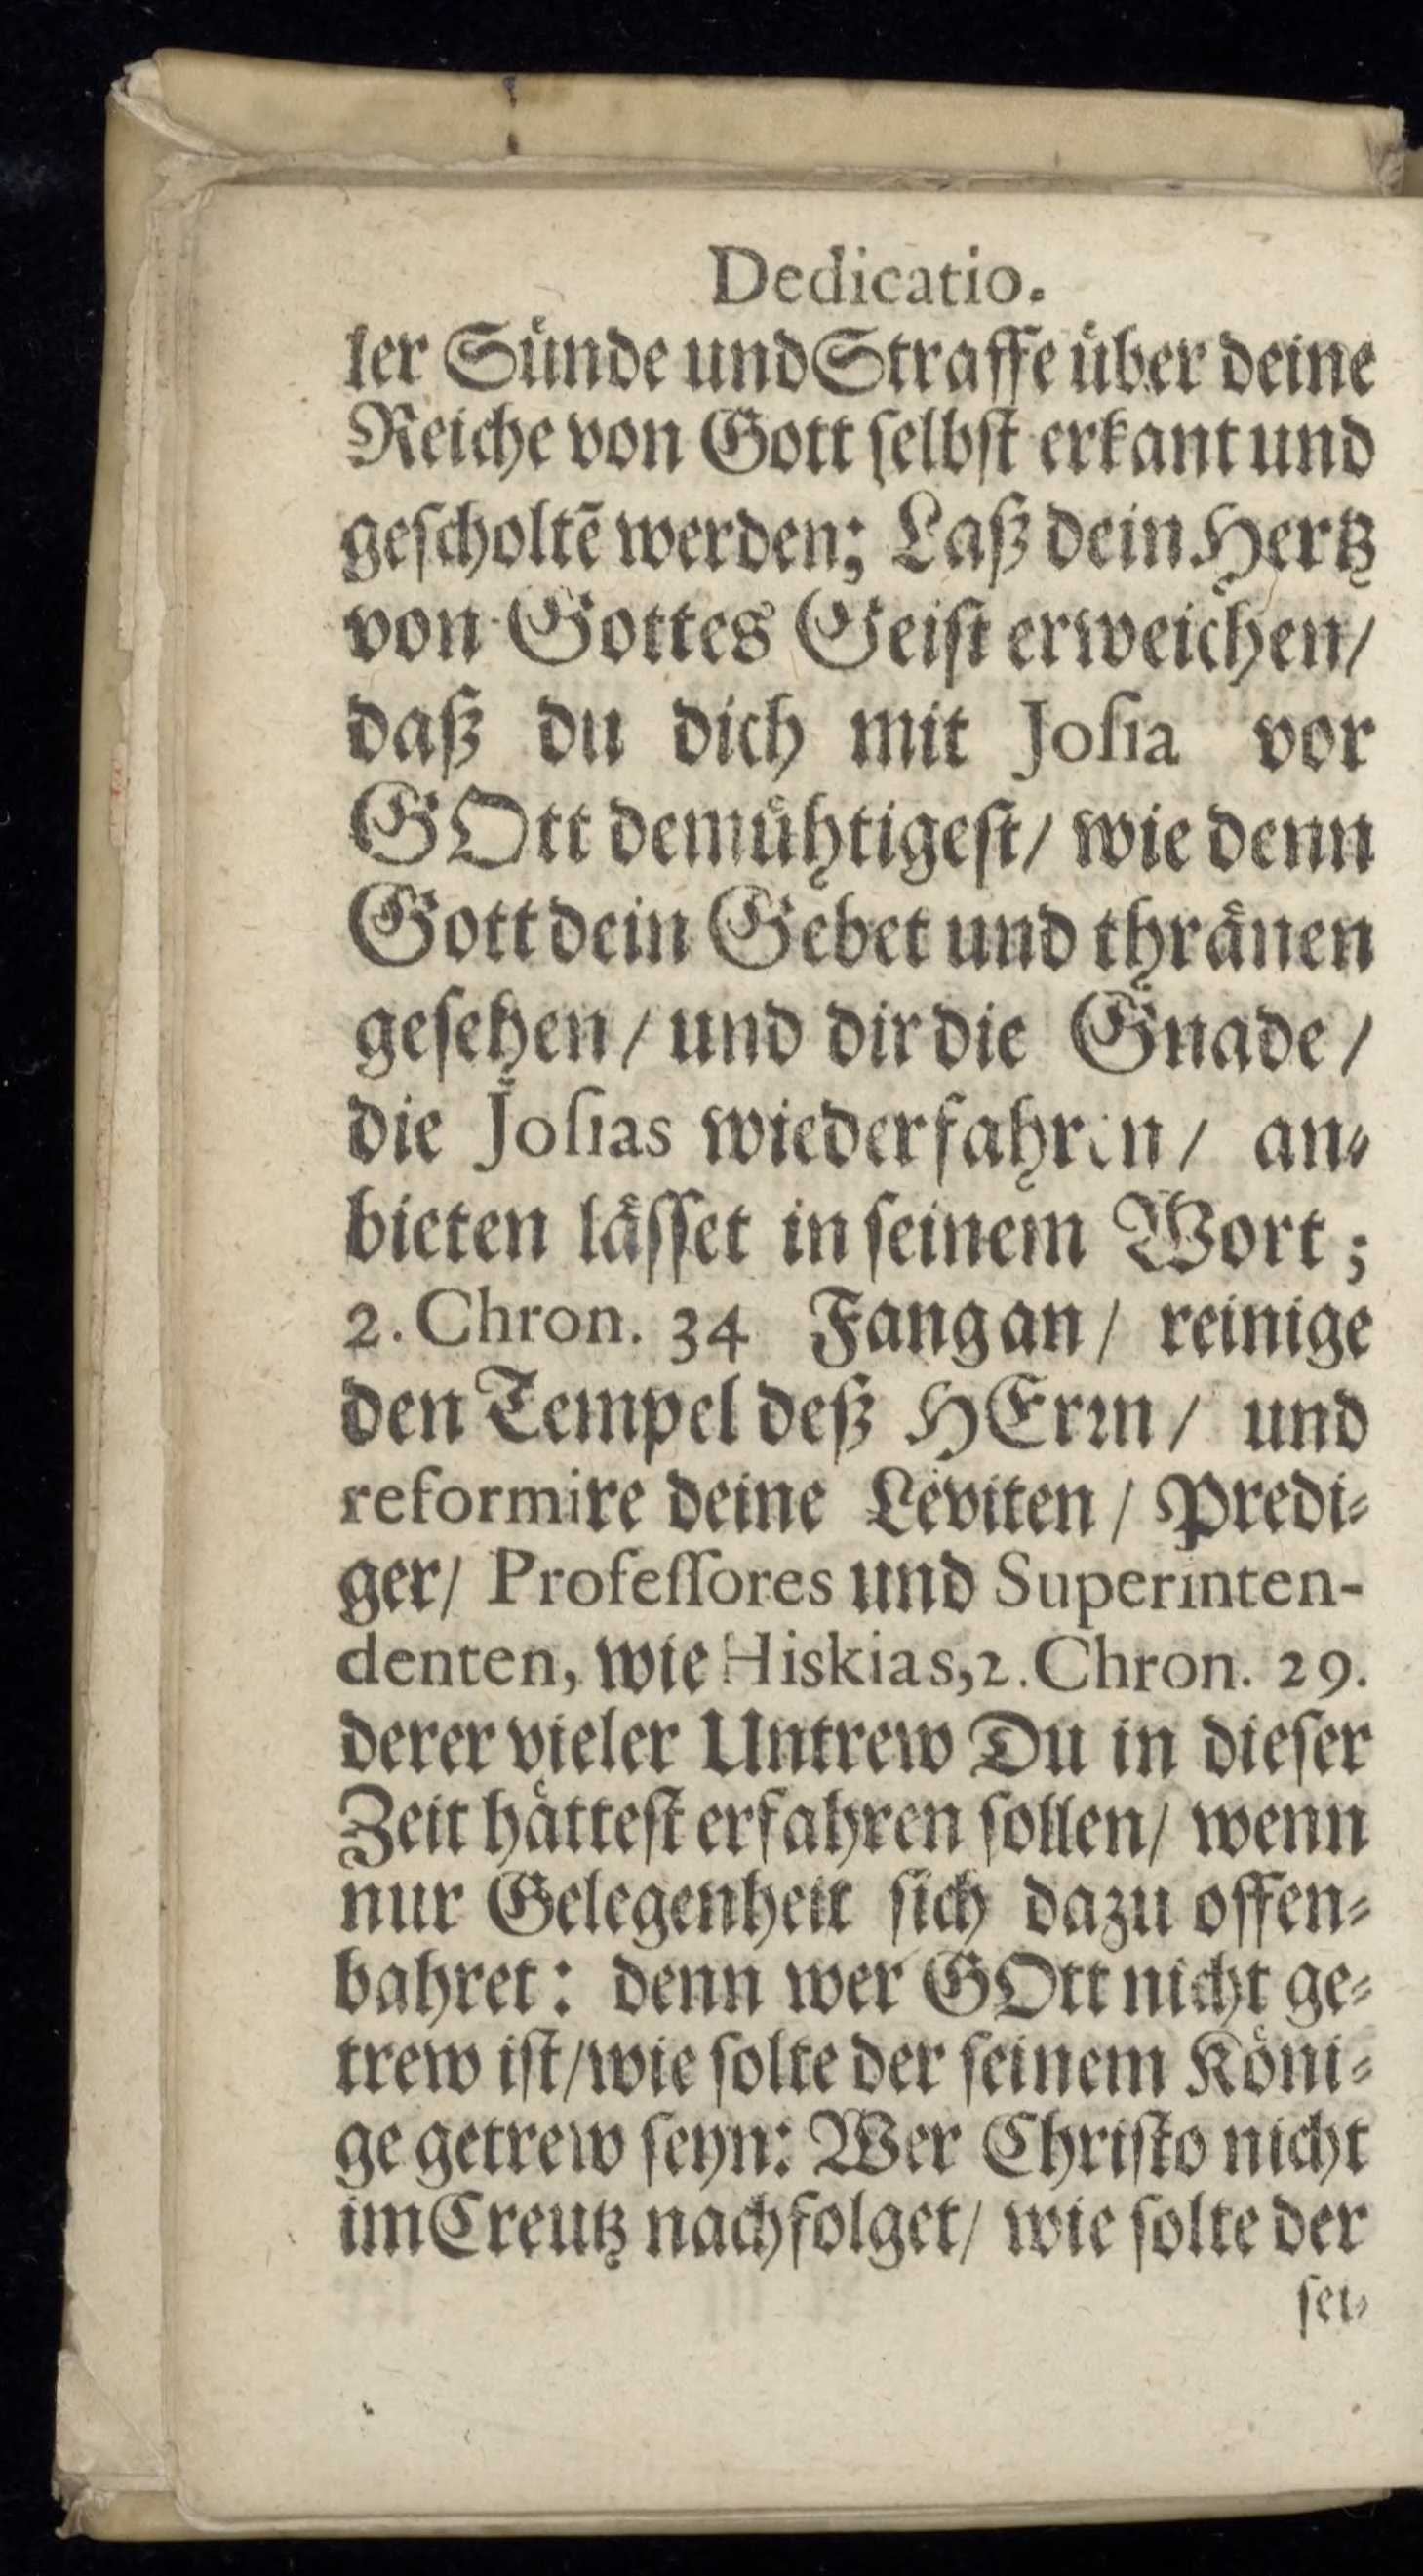 Dedicatio.
ler Sünde und Straffe über deine
Reiche von Gott ſelbſt erkant und
geſcholtē werden; Laß dein Hertz
von Gottes Geiſt erweichen/
daß du dich mit Joſia vor
GOtt demühtigeſt/ wie denn
Gott dein Gebet und thränen
geſehen/ und dir die Gnade/
die Joſias wiederfahren/ an-
bieten läſſet in ſeinem Wort;
2. Chron. 34 Fang an/ reinige
den Tempel deß HErꝛn/ und
reformire deine Leviten/ Predi-
ger/ Profeſſores und Superinten-
denten, wie Hiskias, 2. Chron. 29.
derer vieler Untrew Du in dieſer
Zeit hätteſt erfahren ſollen/ wenn
nur Gelegenheit ſich dazu offen-
bahret: denn wer GOtt nicht ge-
trew iſt/ wie ſolte der ſeinem Köni-
ge getrew ſeyn: Wer Chriſto nicht
im Creutz nachfolget/ wie ſolte der
ſei-